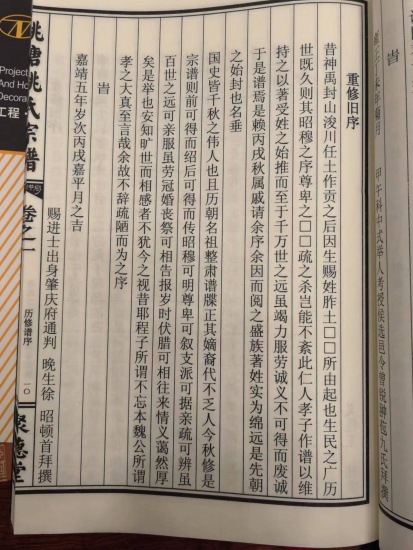 重修旧序
昔神禹封山浚川任土作贡之后因生赐姓胙土□□所由起也生民之广历
世既久则其昭穆之序尊卑之□□疏之杀岂能不紊此仁人孝子作谱以维
持之以著受姓之始推而至于千万世之远虽竭力服劳诚义不可得而废诚
于是谱焉是赖丙戌秋属戚请余序余因而阅之盛族著姓实为绵远是先朝
之始封也名垂
国史皆千秋之伟人也且历朝名祖整肃谱牒正其嫡裔代不乏人今秋修是
宗谱则前可得而绍后可得而传昭穆可明尊卑可叙支派可据亲疏可辨虽
百世之远可亲服虽劳冠婚丧祭可相告报岁时伏腊可相往来情义蔼然厚
矣是举也安知旷世而相感者不犹今之视昔耶程子所谓不忘本魏公所谓
孝之大真至言哉余故不辞疏陋而为之序
旹
嘉靖五年岁次丙戌嘉平月之吉
赐进士出身肇庆府通判 晚生徐 昭顿首拜撰
姚氏宗谱
卷之一
历修谱序
一〇
聚德堂
Project
And Ho
Decora
工程